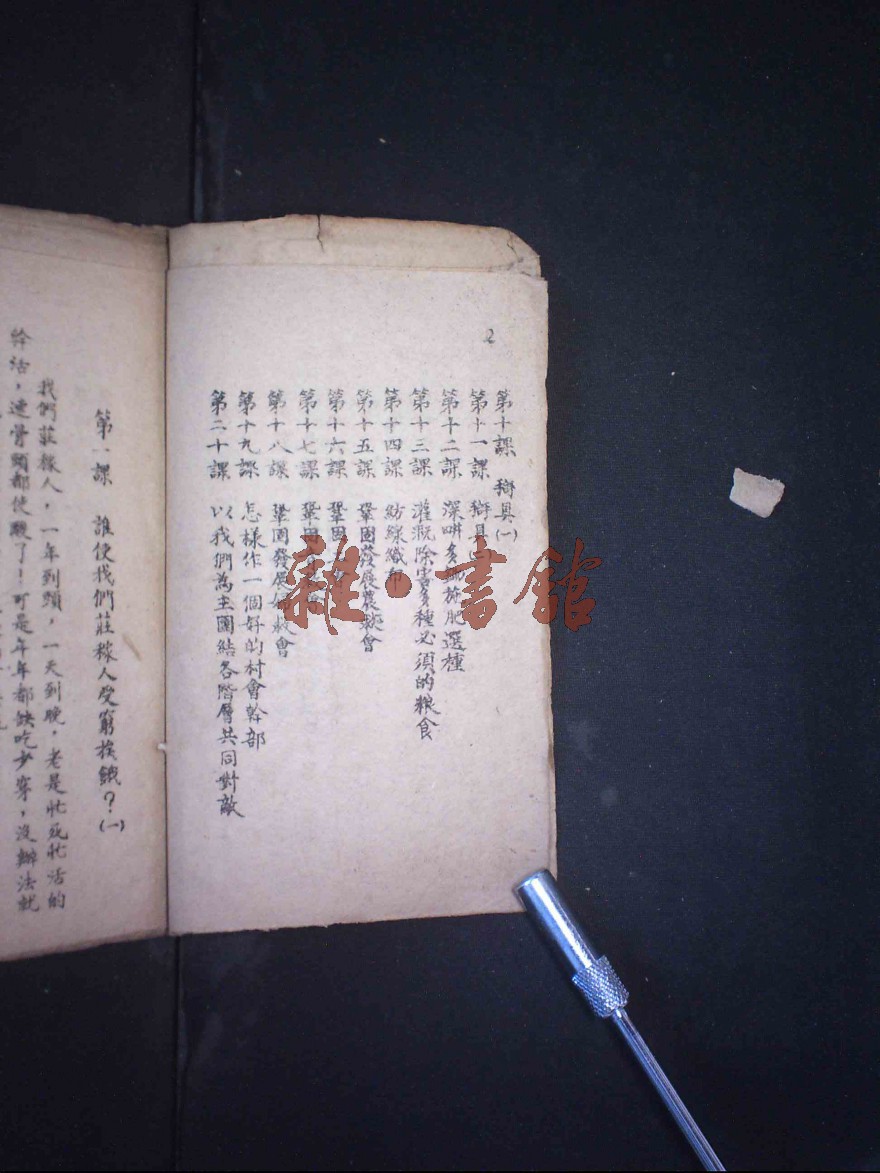 2
第十課 (一)
第十一課
第十二課 深耕多鋤施肥選種
第十三課 灌溉除害多種必須的粮食
第十四課 紡線織布
第十五課 鞏固發展農救會
第十六課 鞏固
第十七課 鞏固
第十八課 鞏固發展婦救會
第十九課 怎樣作一個好的村會幹部
第二十課 以我們為主團結各階層共同對敵
第一課 誰使我們莊稼人受窮挨餓？(一)
我們莊稼人，一年到頭，一天到晚，老是忙死忙活的
幹活，連骨頭都使酸了！可是年年都缺吃少穿，沒辦法就
雜·書館